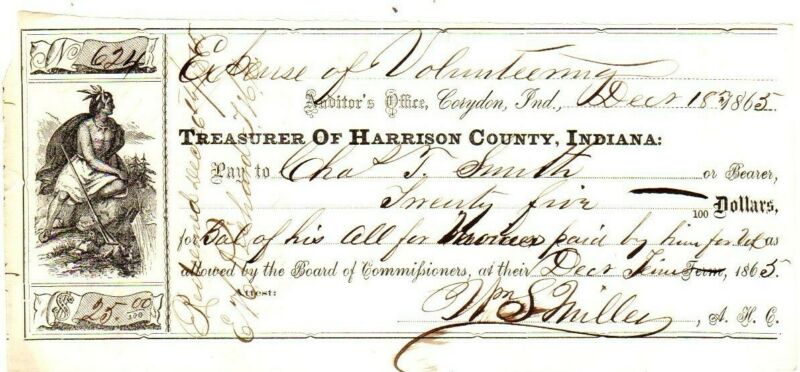 No. 624
Expense of Volunteering
Auditor's Office, Corydon, Ind., Decr 18th 1865
TREASURER OF HARRISON COUNTY, INDIANA:
Pay to Chas T. Smith or Bearer,
Twenty five /100 Dollars,
for Bal of his All for paid by him for Vol as
allowed by the Board of Commissioners, at their Decr Term, 1865.
Attest:
Wm S Miller, A. H. C.
$25.00/100